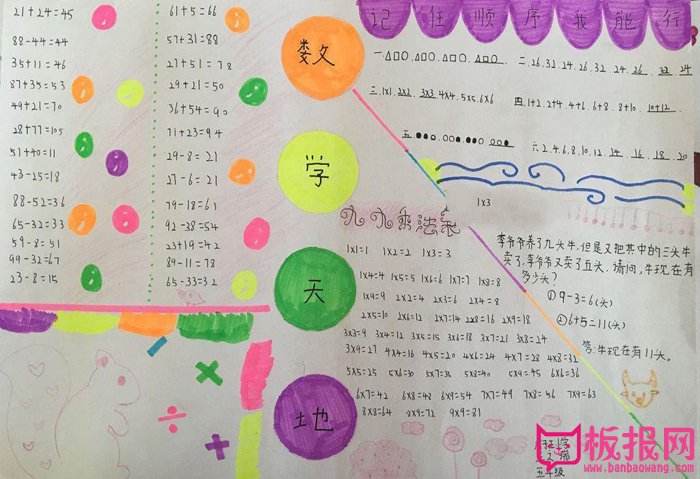 21+24=45
88-44=44
35+11=46
87+35=53
49+21=70
28+77=105
51+40=11
43-25=18
88-52=36
65-32=33
59-8=51
99-32=67
23-8=15
61+5=66
57+31=88
27+51=78
29+21=50
36+54=90
71+23=94
29-8=21
27-6=21
79-18=61
92-38=54
23+19=42
89-11=78
65-33=32
数
学
天
地
记住顺序我能行
一.△□○.△□○.△□○.△□○
二.26.32.24.26.32.24.26.32.24
三.1x1.2x2.3x3.4x4.5x5.6x6
四.1+2.2+4.4+6.6+8.8+10.10+12
五.●●○.○○●.●●○.○○○
六.2.4.6.8.10.12.14.16.18.20
1x3
九九乘法表
1x1=1 1x2=2 1x3=3
1x4=4 1x5=5 1x6=6 1x7=7 1x8=8
1x9=9 2x2=4 2x3=6 2x4=8
2x5=10 2x6=12 2x7=14 2x8=16 2x9=18
3x3=9 3x4=12 3x5=15 3x6=18 3x7=21 3x8=24
3x9=27 4x4=16 4x5=20 4x6=24 4x7=28 4x8=32
5x5=25 5x6=30 5x7=35 5x8=40 5x9=45 6x6=36
6x7=42 6x8=48 6x9=54 7x7=49 7x8=56 7x9=63
8x8=64 8x9=72 9x9=81
李爷爷养了九头牛,但是又把其中的三头牛
卖了,李爷爷又卖了五头.请问,牛现在有
多少头?
①9-3=6(头)
②6+5=11(头)
答:牛现在有11头。
五年级
板报网
www.banbaowang.com